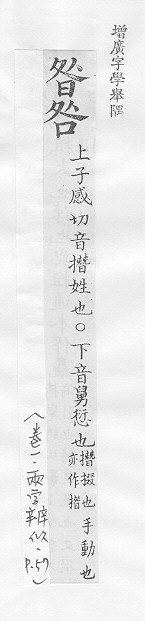 增廣字學舉隅
昝咎
上子感切音撍姓也○下音舅愆也
撍掇也手動也
亦作揝
(卷一·兩字辨似·P.57)